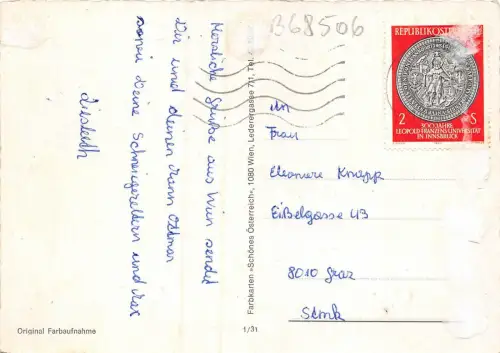 B68506
Herzliche Grüße aus Wien sendet
Dir und deinem Mann Ottmar
Deine Schwiegereltern und Max
Lieselotte
Farbkarten »Schönes Österreich«, 1080 Wien, Lederergasse 7/1, Tel.
REPUBLIK ÖSTERREICH
2 S
300 JAHRE
LEOPOLD-FRANZENS-UNIVERSITÄT
IN INNSBRUCK
An
Frau
Eleonore Knapp
Eißelgasse 43
8010 Graz
Stmk
Original Farbaufnahme
1/31